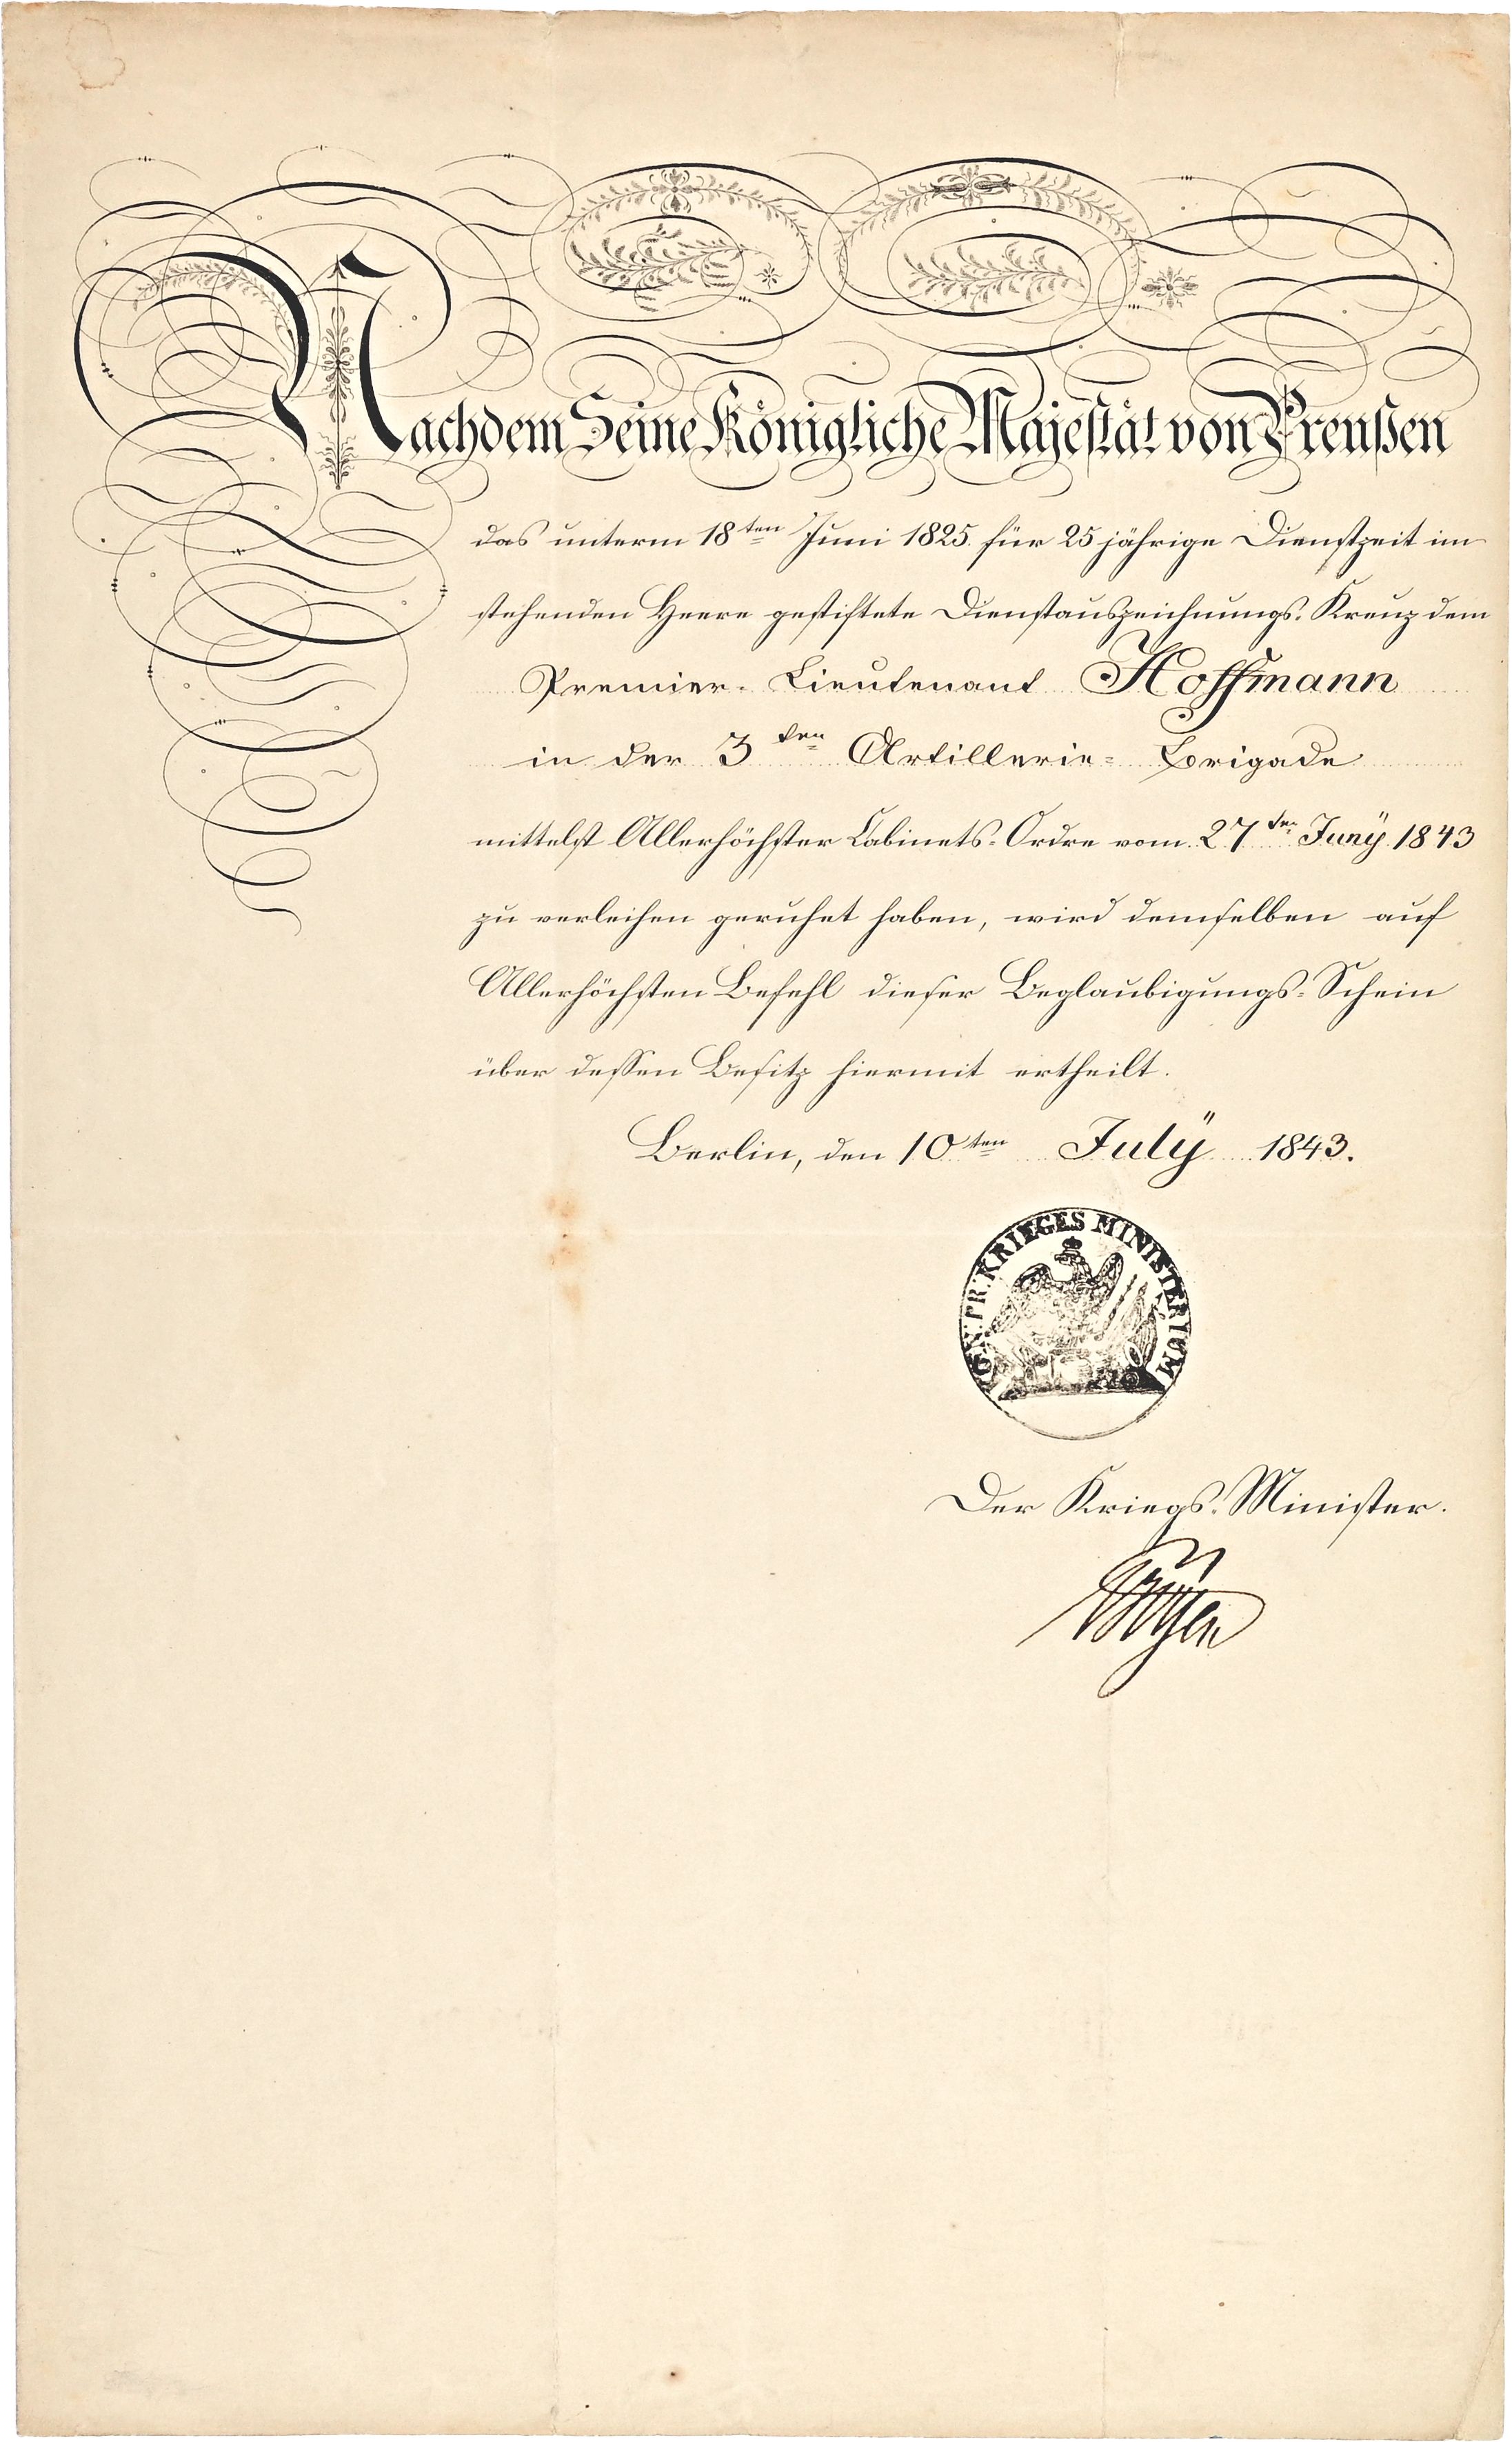 Nachdem Seine Königliche Majestät von Preußen
das unterm 18ten Juni 1825 für 25 jährige Dienstzeit im
stehenden Heere gestiftete Dienstauszeichnungs-Kreuz dem
Premier-Lieutenant Hoffmann
in der 3ten Artillerie-Brigade
mittelst Allerhöchster Cabinets-Ordre vom 27ten Juny 1843
zu verleihen geruhet haben, wird demselben auf
Allerhöchsten Befehl dieser Beglaubigungs-Schein
über dessen Besitz hiermit ertheilt.
Berlin, den 10ten July 1843.
K. PR. KRIEGES MINISTERIUM
Der Kriegs-Minister.
Boyen